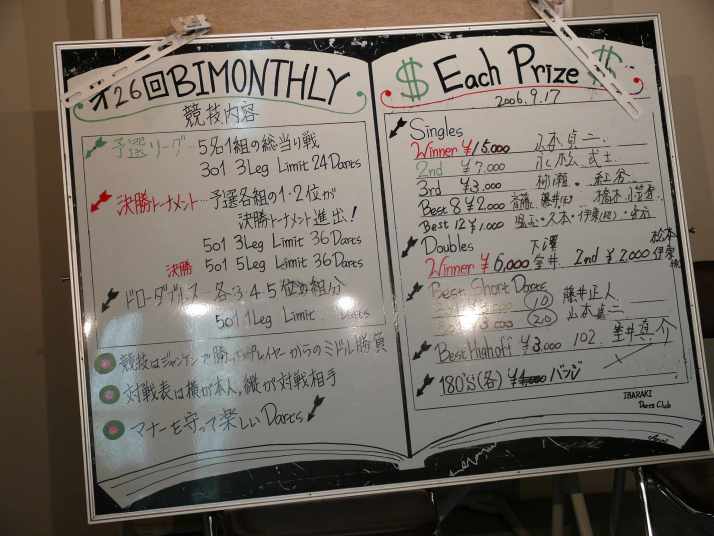 オ26回BIMONTHLY
競技内容
予選リーグ…5名1組の総当り戦
301 3Leg Limit 24Darts
決勝トーナメント…予選各組の1・2位が
決勝トーナメント進出!
501 3Leg Limit 36Darts
決勝 501 5Leg Limit 36Darts
ドローダブルス 各3.4.5位の組分
501 1Leg Limit Darts
競技はジャンケンで勝ったプレイヤーからのミドル勝負
対戦表は横が本人,縦が対戦相手
マナーを守って楽しいDarts
$ Each Prize $
2006.9.17
Singles
Winner ¥15.000 山本貞二
2nd ¥7.000 武士
3rd ¥3.000 柳瀬・
Best 8 ¥2000 藤井 橋本
Best 12 ¥1.000 ・久本・伊東
Doubles 下澤
Winner ¥6,000 2nd ¥2,000 松本 伊東
Best Short Darts
10 藤井正人
¥3.000 20 山本
Best High off ¥3,000 102
180'S(各) ¥1,000 バッジ
IBARAKI
Darts Club